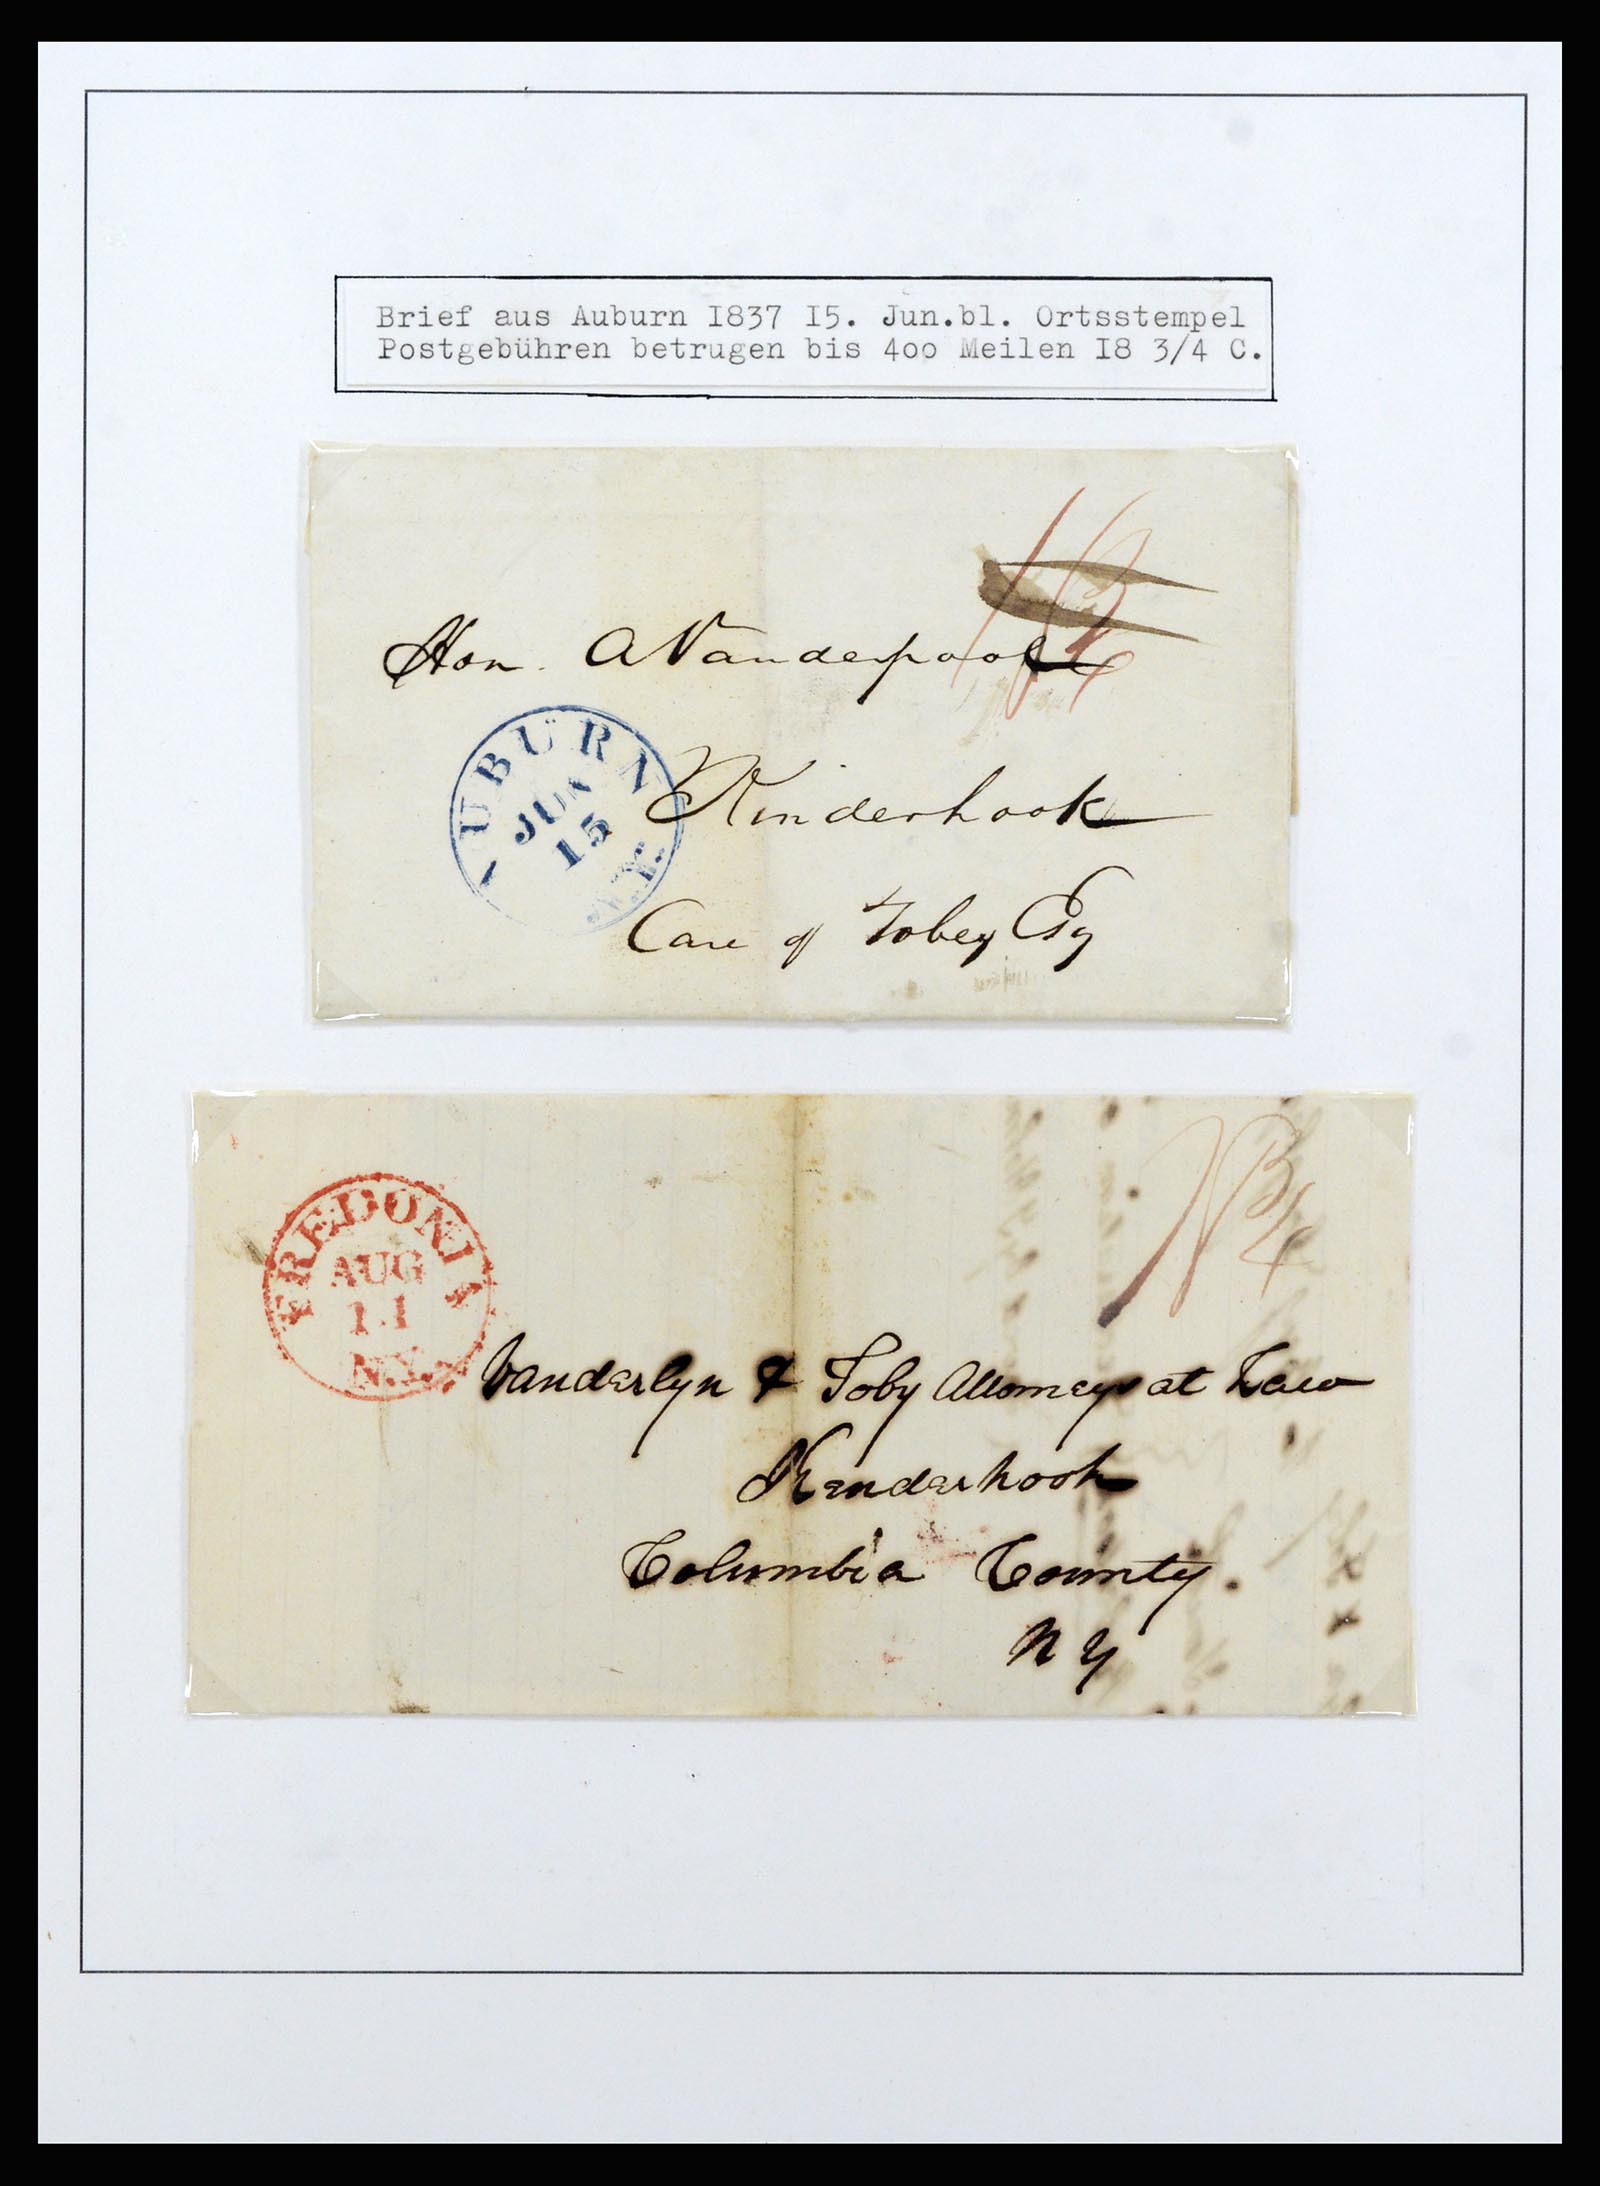 Brief aus Auburn I837 I5. Jun.bl. Ortsstempel
Postgebühren betrugen bis 4oo Meilen I8 3/4 C.
Hon. A Vanderpoel
AUBURN
JUN
15
N.Y.
Kinderhook
Care of Tobey Esq
FREDONIA
AUG
11
N.Y.
18 3/4
Vanderlyn & Toby Attorneys at Law
Kenderhook
Columbia County.
N Y